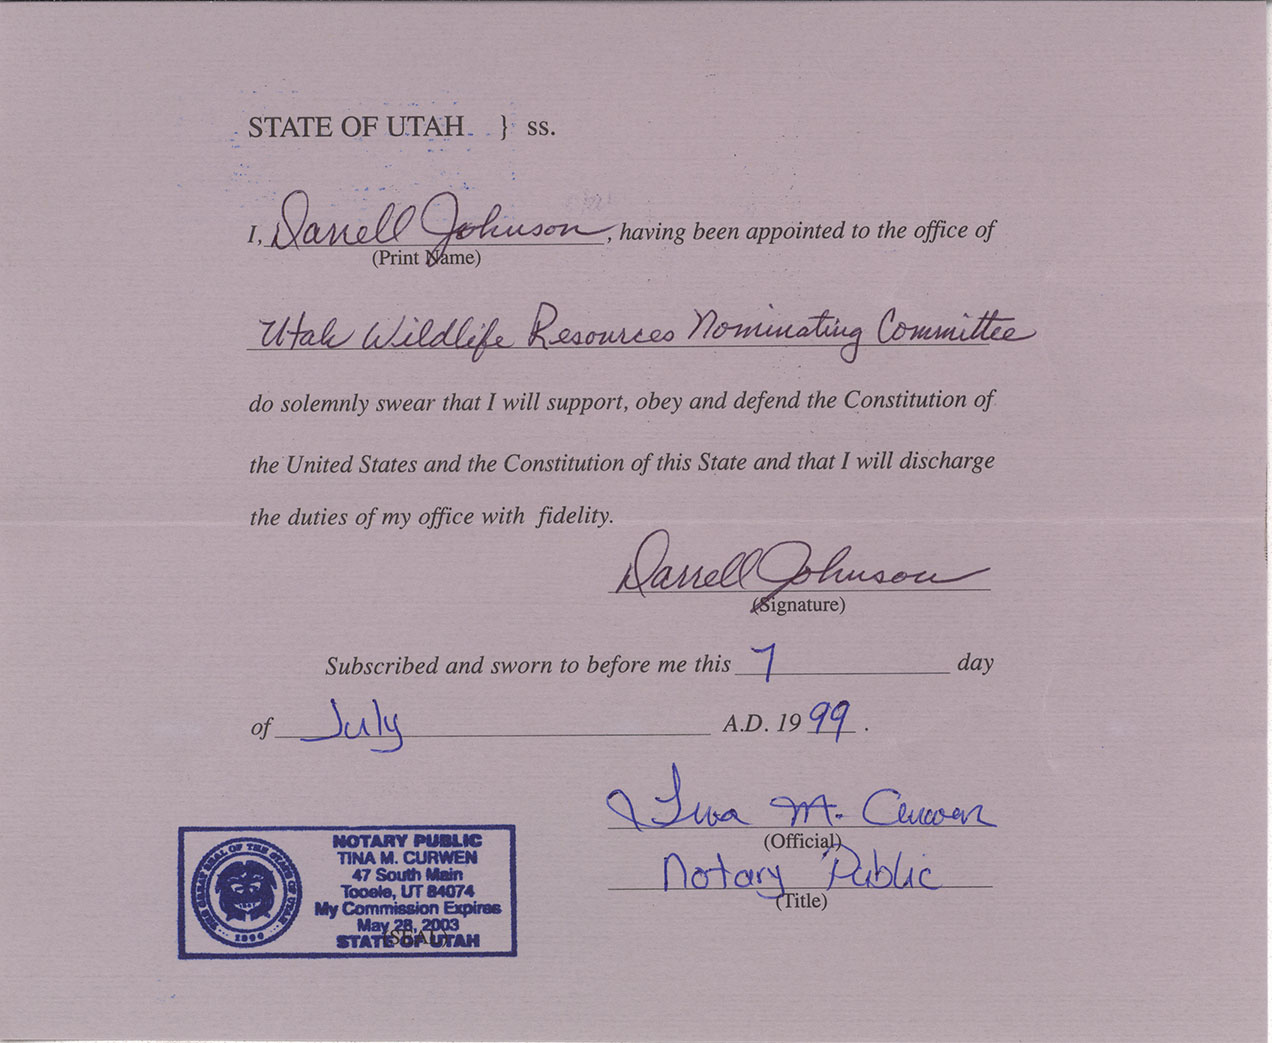 STATE OF UTAH } ss.
I, Darrell Johnson, having been appointed to the office of
(Print Name)
Utah Wildlife Resources Nominating Committee
do solemnly swear that I will support, obey and defend the Constitution of
the United States and the Constitution of this State and that I will discharge
the duties of my office with fidelity.
Darrell Johnson
(Signature)
Subscribed and sworn to before me this 7 day
of July A.D. 1999.
Tina M. Curwen
(Official)
Notary Public
(Title)
NOTARY PUBLIC
TINA M. CURWEN
47 South Main
Tooele, UT 84074
My Commission Expires
May 28, 2003
STATE OF UTAH
(SEAL)
THE GREAT SEAL OF THE STATE OF UTAH
1896